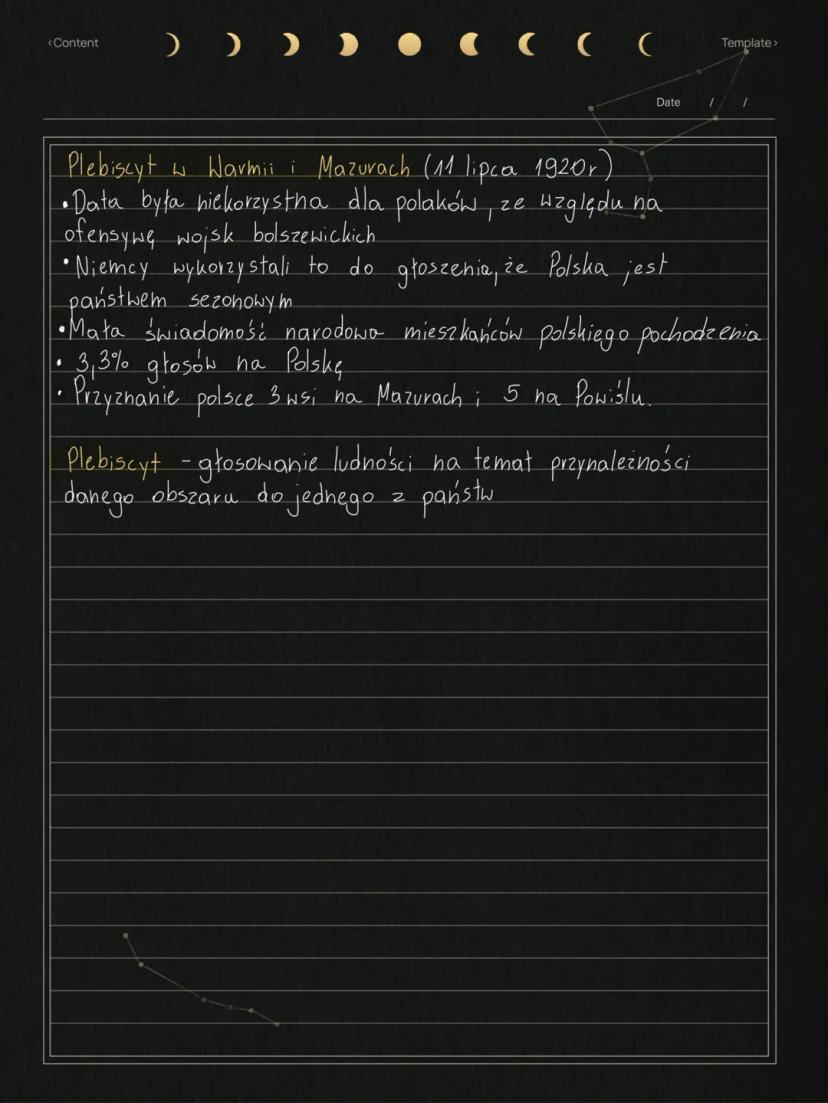 ‹Content
Template›
Date / /
Plebiscyt w Warmii i Mazurach (11 lipca 1920r)
•Data była niekorzystna dla polaków, ze względu na
ofensywę wojsk bolszewickich
•Niemcy wykorzystali to do głoszenia, że Polska jest
państwem sezonowym
•Mała świadomość narodowa mieszkańców polskiego pochodzenia
• 3,3% głosów na Polskę
• Przyznanie polsce 3 wsi na Mazurach i 5 na Powiślu.
Plebiscyt - głosowanie ludności na temat przynależności
danego obszaru do jednego z państw